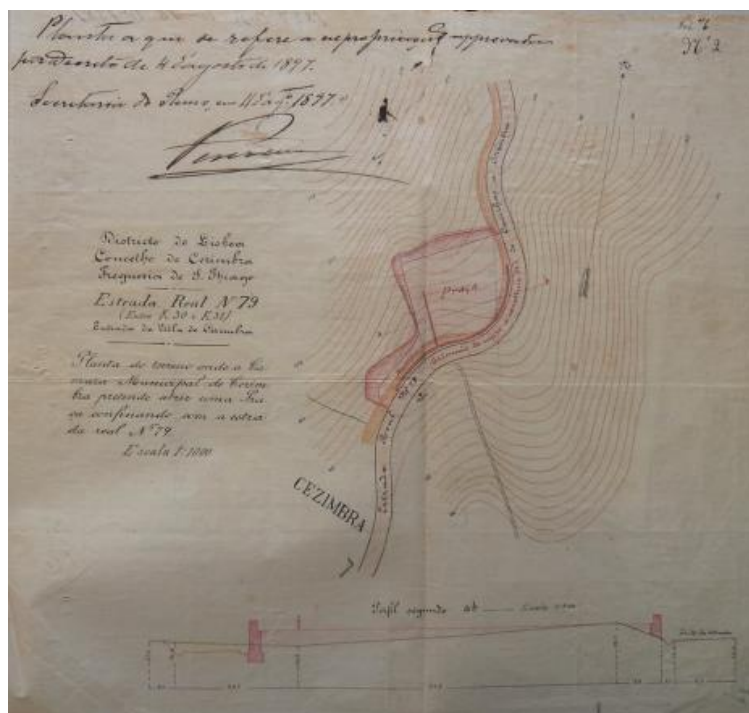 Planta a que se refere a expropriação approvada
por Decreto de 4 d'agosto de 1897.
Secretaria do Reino, em 4 d'ag.º 1897.
Nº 2
Districto de Lisboa
Concelho de Cezimbra
Freguezia de S. Thiago
Estrada Real Nº 79
(Entre K. 30 e K. 31)
Entrada da Villa de Cezimbra
Planta do terreno onde a Ca
mara Municipal de Cezim
bra pretende abrir uma Pra
ça confinando com a estra
da real Nº 79.
Escala 1:1000
praça
Estrada Real Nº 79
CEZIMBRA
Perfil segundo ab